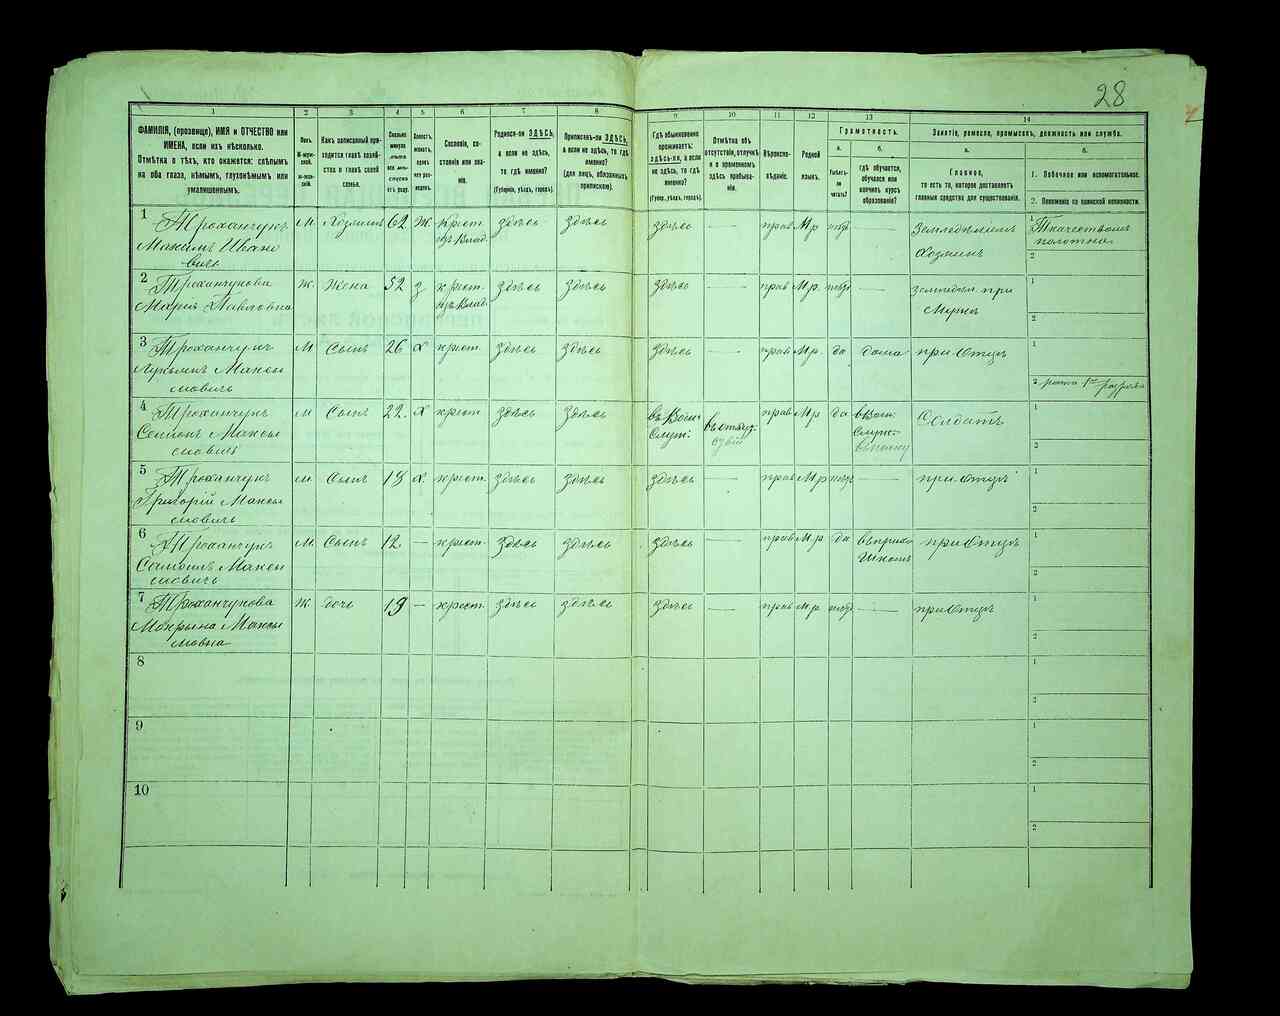 28
1 2 3 4 5 6 7 8 9 10 11 12 13 14
ФАМИЛІЯ, (прозвище), ИМЯ и ОТЧЕСТВО или
ИМЕНА, если ихъ нѣсколько.
Отмѣтка о тѣхъ, кто окажется: слѣпымъ
на оба глаза, нѣмымъ, глухонѣмымъ или
умалишеннымъ.
Полъ.
М-муж-
ской.
Ж-жен-
скій.
Какъ записанный при-
ходится главѣ хозяй-
ства и главѣ своей
семьи.
Сколько
минуло
лѣтъ
Холостъ,
женатъ,
вдовъ
или раз-
веденъ.
Сословіе, со-
стояніе или зва-
ніе.
Родился-ли ЗДѢСЬ,
а если не здѣсь,
то гдѣ именно?
(Губернія, уѣздъ, городъ).
Приписанъ-ли ЗДѢСЬ,
а если не здѣсь, то гдѣ
именно?
(для лицъ, обязанныхъ
припискою).
Гдѣ обыкновенно
проживаетъ:
здѣсь-ли, а если
не здѣсь, то гдѣ
именно?
(Губер., уѣздъ, городъ).
Отмѣтка объ
отсутствіи, отлучкѣ
и о временномъ
здѣсь пребыва-
ніи.
Вѣроиспо-
вѣданіе.
Родной
языкъ.
Грамотность.
а. б.
Умѣетъ-
ли
читать?
гдѣ обучается,
обучался или
кончилъ курсъ
образованія?
Занятіе, ремесло, промыселъ, должность или служба.
а. б.
Главное,
то есть то, которое доставляетъ
главныя средства для существованія.
1. Побочное или вспомогательное.
2. Положеніе по воинской повинности.
1 Трохончукъ М. Хозяинъ 62 Ж. крест. здѣсь здѣсь здѣсь — прав Мр нѣтъ — Земледѣліемъ 1 Ткачествомъ
Максимъ Ивано изъ Влад. Хозяинъ полотна
вичъ 2
2 Трохончукова Ж. Жена 52 з крест. здѣсь здѣсь здѣсь — прав Мр. нѣтъ — земледѣл. при 1
Марія Павловна изъ Влад. Мужѣ 2
3 Трохончукъ М. Сынъ 26 х крест. здѣсь здѣсь здѣсь — прав Мр. да дома при Отцѣ 1
Лукьянъ Макси
мовичъ 2 ратн. 1го разряда
4 Трохончукъ М Сынъ 22 х крест здѣсь здѣсь въ Воин. въ отсут- прав Мр да в Воин. Солдатъ 1
Семіонъ Макси Служ: ствіи Служ:
мовичъ въ полку 2
5 Трохончукъ М Сынъ 18 х крест. здѣсь здѣсь здѣсь — прав Мр нѣтъ — при Отцѣ 1
Григорій Макси
мовичъ 2
6 Трохончукъ М. Сынъ 12 — крест. здѣсь здѣсь здѣсь — прав Мр. да въ приход. при Отцѣ 1
Самоилъ Макси Школѣ
мовичъ 2
7 Трохончукова Ж. дочь — крест. здѣсь здѣсь здѣсь — прав Мр. нѣтъ — при Отцѣ 1
Мокрына Макси
мовна 2
8 1
2
9 1
2
10 1
2